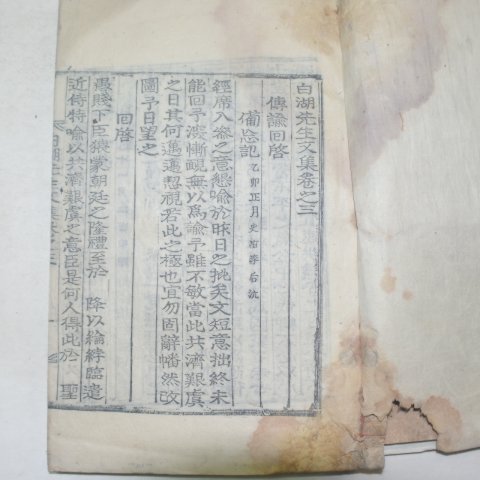 白湖先生文集卷之三
傳諭回啓
備忘記 乙卯正月史官李后沆
經席入參之意懇諭於昨日之批矣文短意拙終未
能回予深慚靦無以爲諭予雖不敏當此共濟艱虞
之日其何邁邁恝視若此之極也宜勿固辭幡然改
圖予日望之
回啓
愚賤下臣猥蒙朝廷之隆禮至於 降以綸綍臨遣
近侍特喩以共濟艱虞之意臣是何人得此於 聖